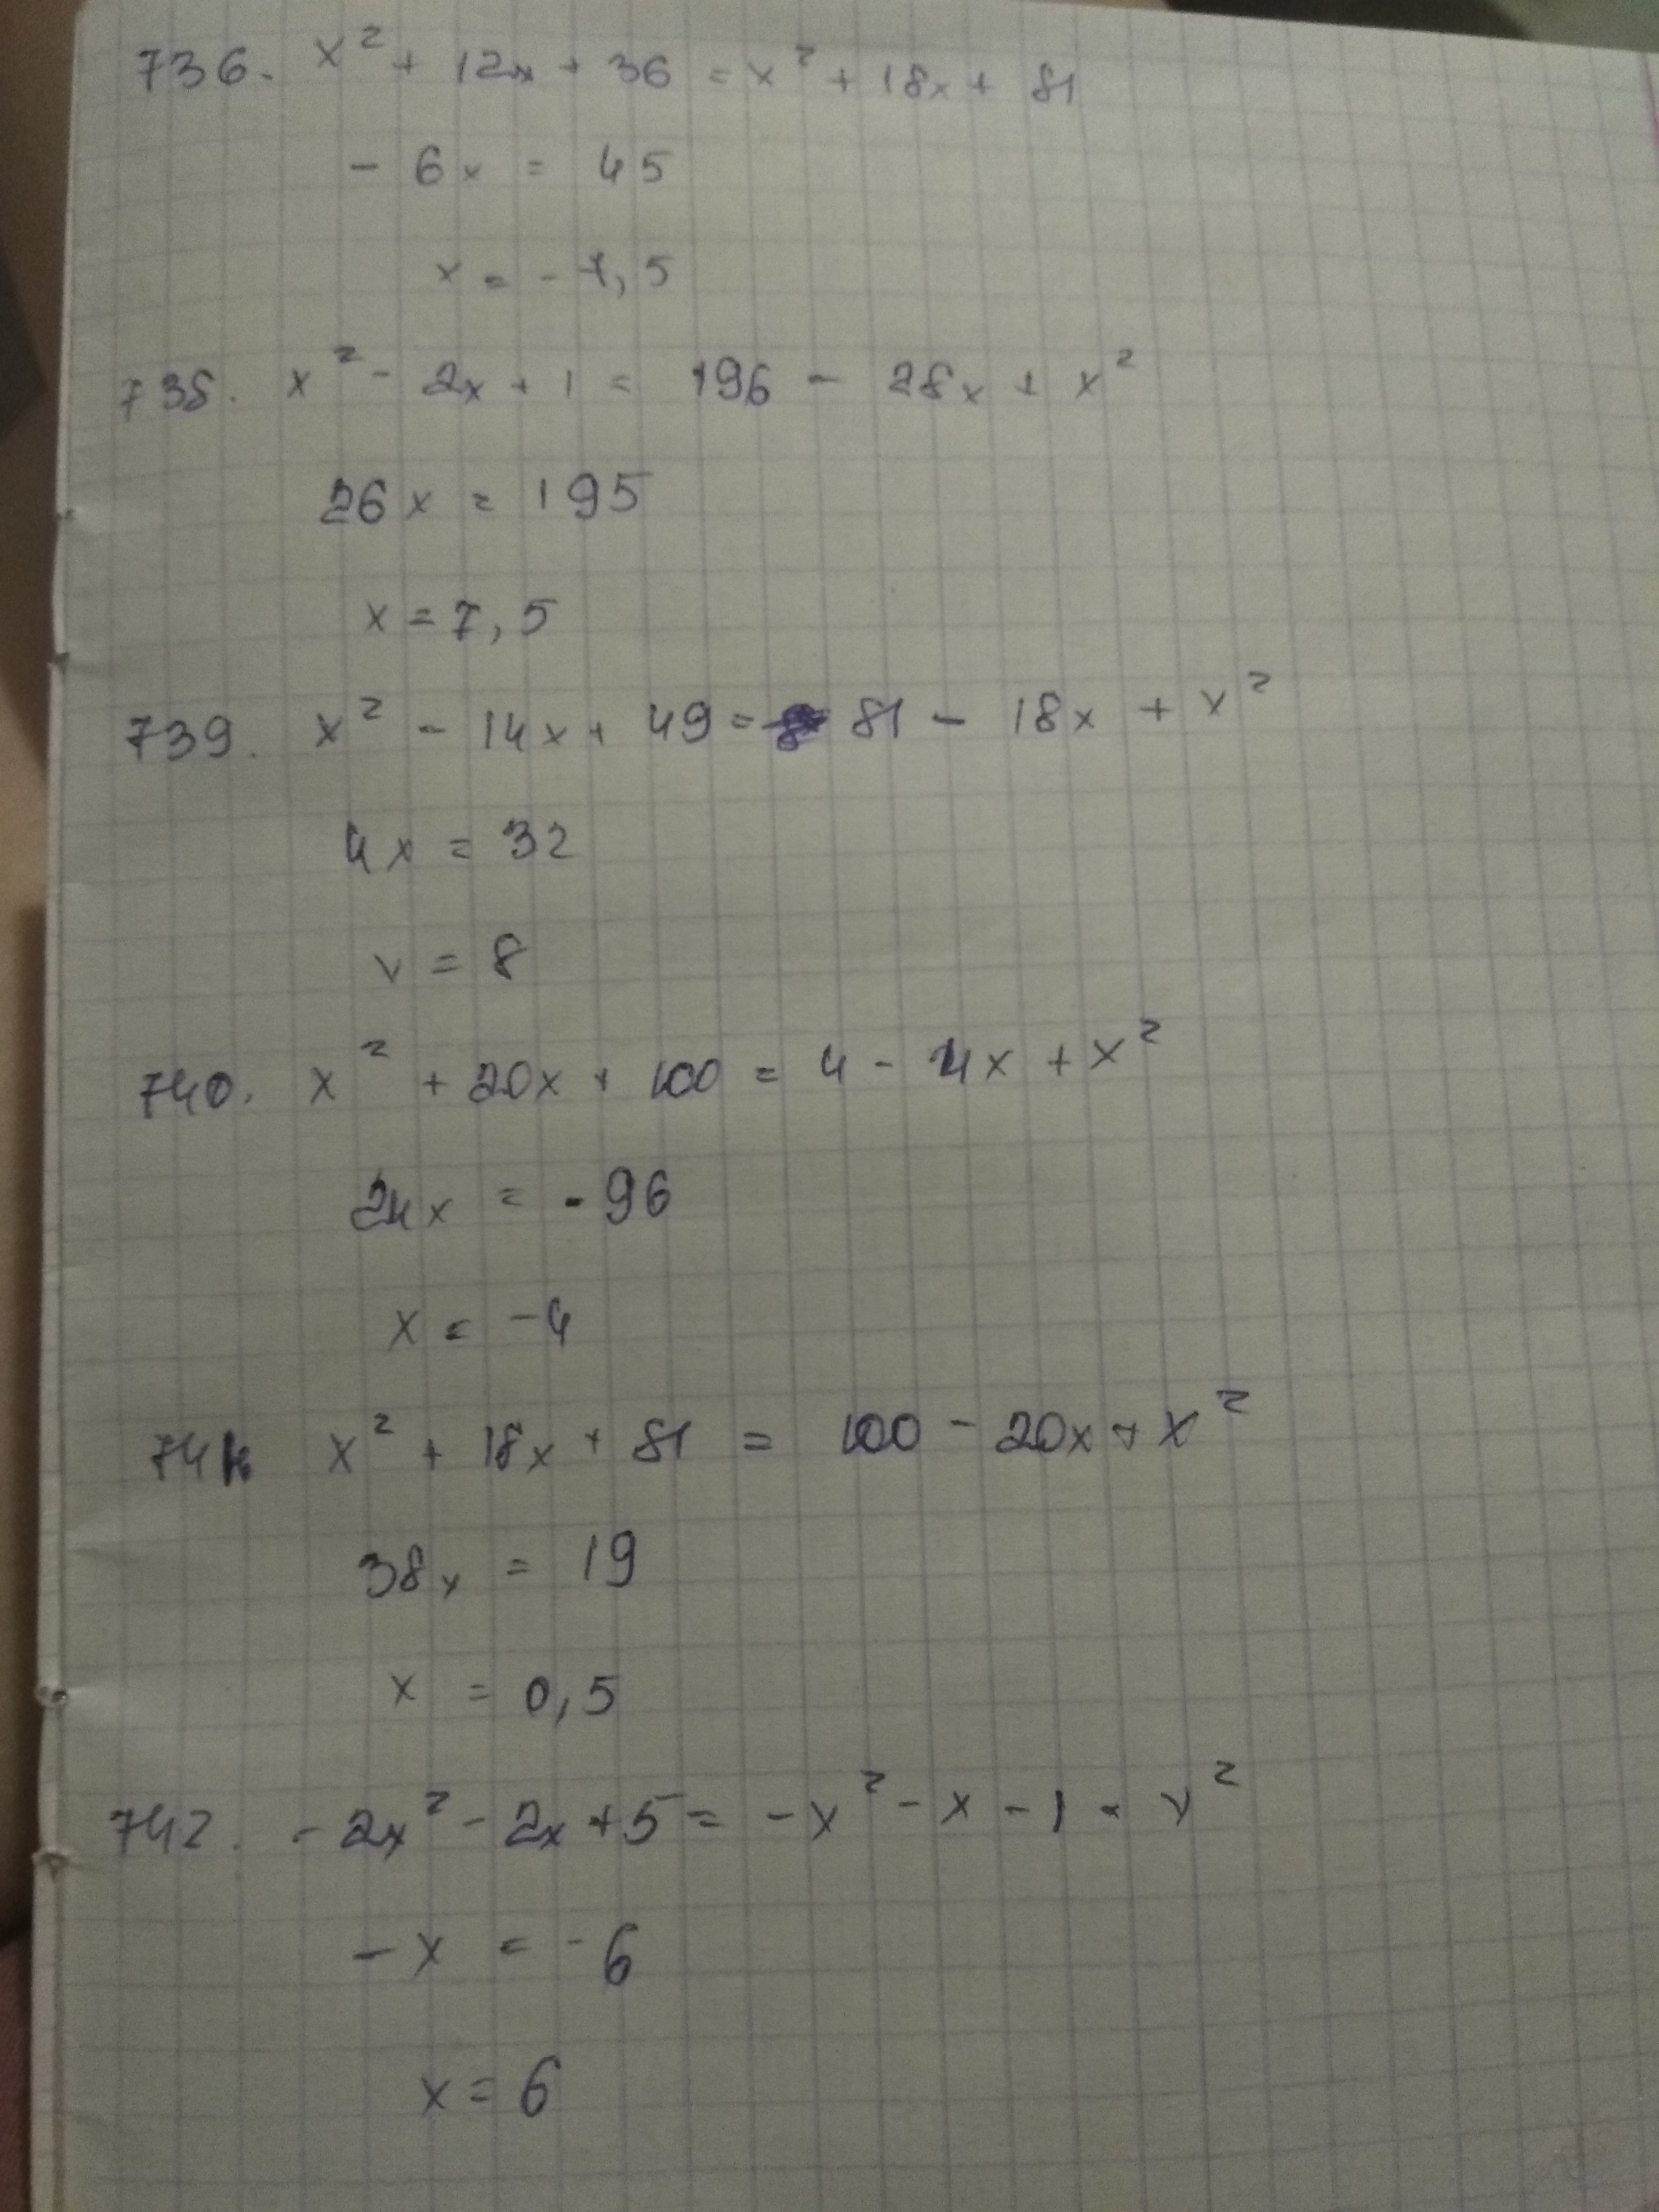 736. x² + 12x + 36 = x² + 18x + 81
- 6x = 45
x = - 7,5
738. x² - 2x + 1 = 196 - 28x + x²
26x = 195
x = 7,5
739. x² - 14x + 49 = 81 - 18x + x²
4x = 32
x = 8
740. x² + 20x + 100 = 4 - 4x + x²
24x = - 96
x = -4
741. x² + 18x + 81 = 100 - 20x + x²
38x = 19
x = 0,5
742. - 2x² - 2x + 5 = - x² - x - 1 - x²
- x = - 6
x = 6